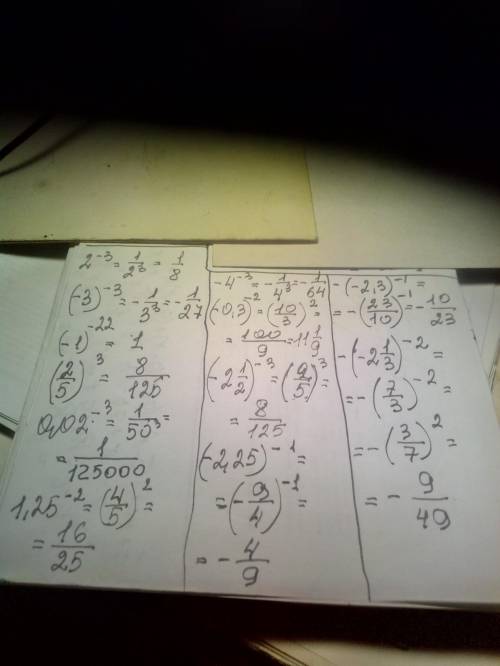 2^-3 = 1/2^3 = 1/8
(-3)^-3 = - 1/3^3 = - 1/27
(-1)^-22 = 1
(2/5)^3 = 8/125
0,02^-3 = 1/50^3 =
= 1/125000
1,25^-2 = (4/5)^2 =
= 16/25
-4^-3 = - 1/4^3 = - 1/64
(-0,3)^-2 = (10/3)^2 =
= 100/9 = 11 1/9
(-2 1/2)^-3 = (2/5)^3 =
= 8/125
(-2,25)^-1 =
= (- 9/4)^-1 =
= - 4/9
-(-2,3)^-1 =
= -(23/10)^-1 = - 10/23
-(-2 1/3)^-2 =
= -(7/3)^-2 =
= -(3/7)^2 =
= - 9/49